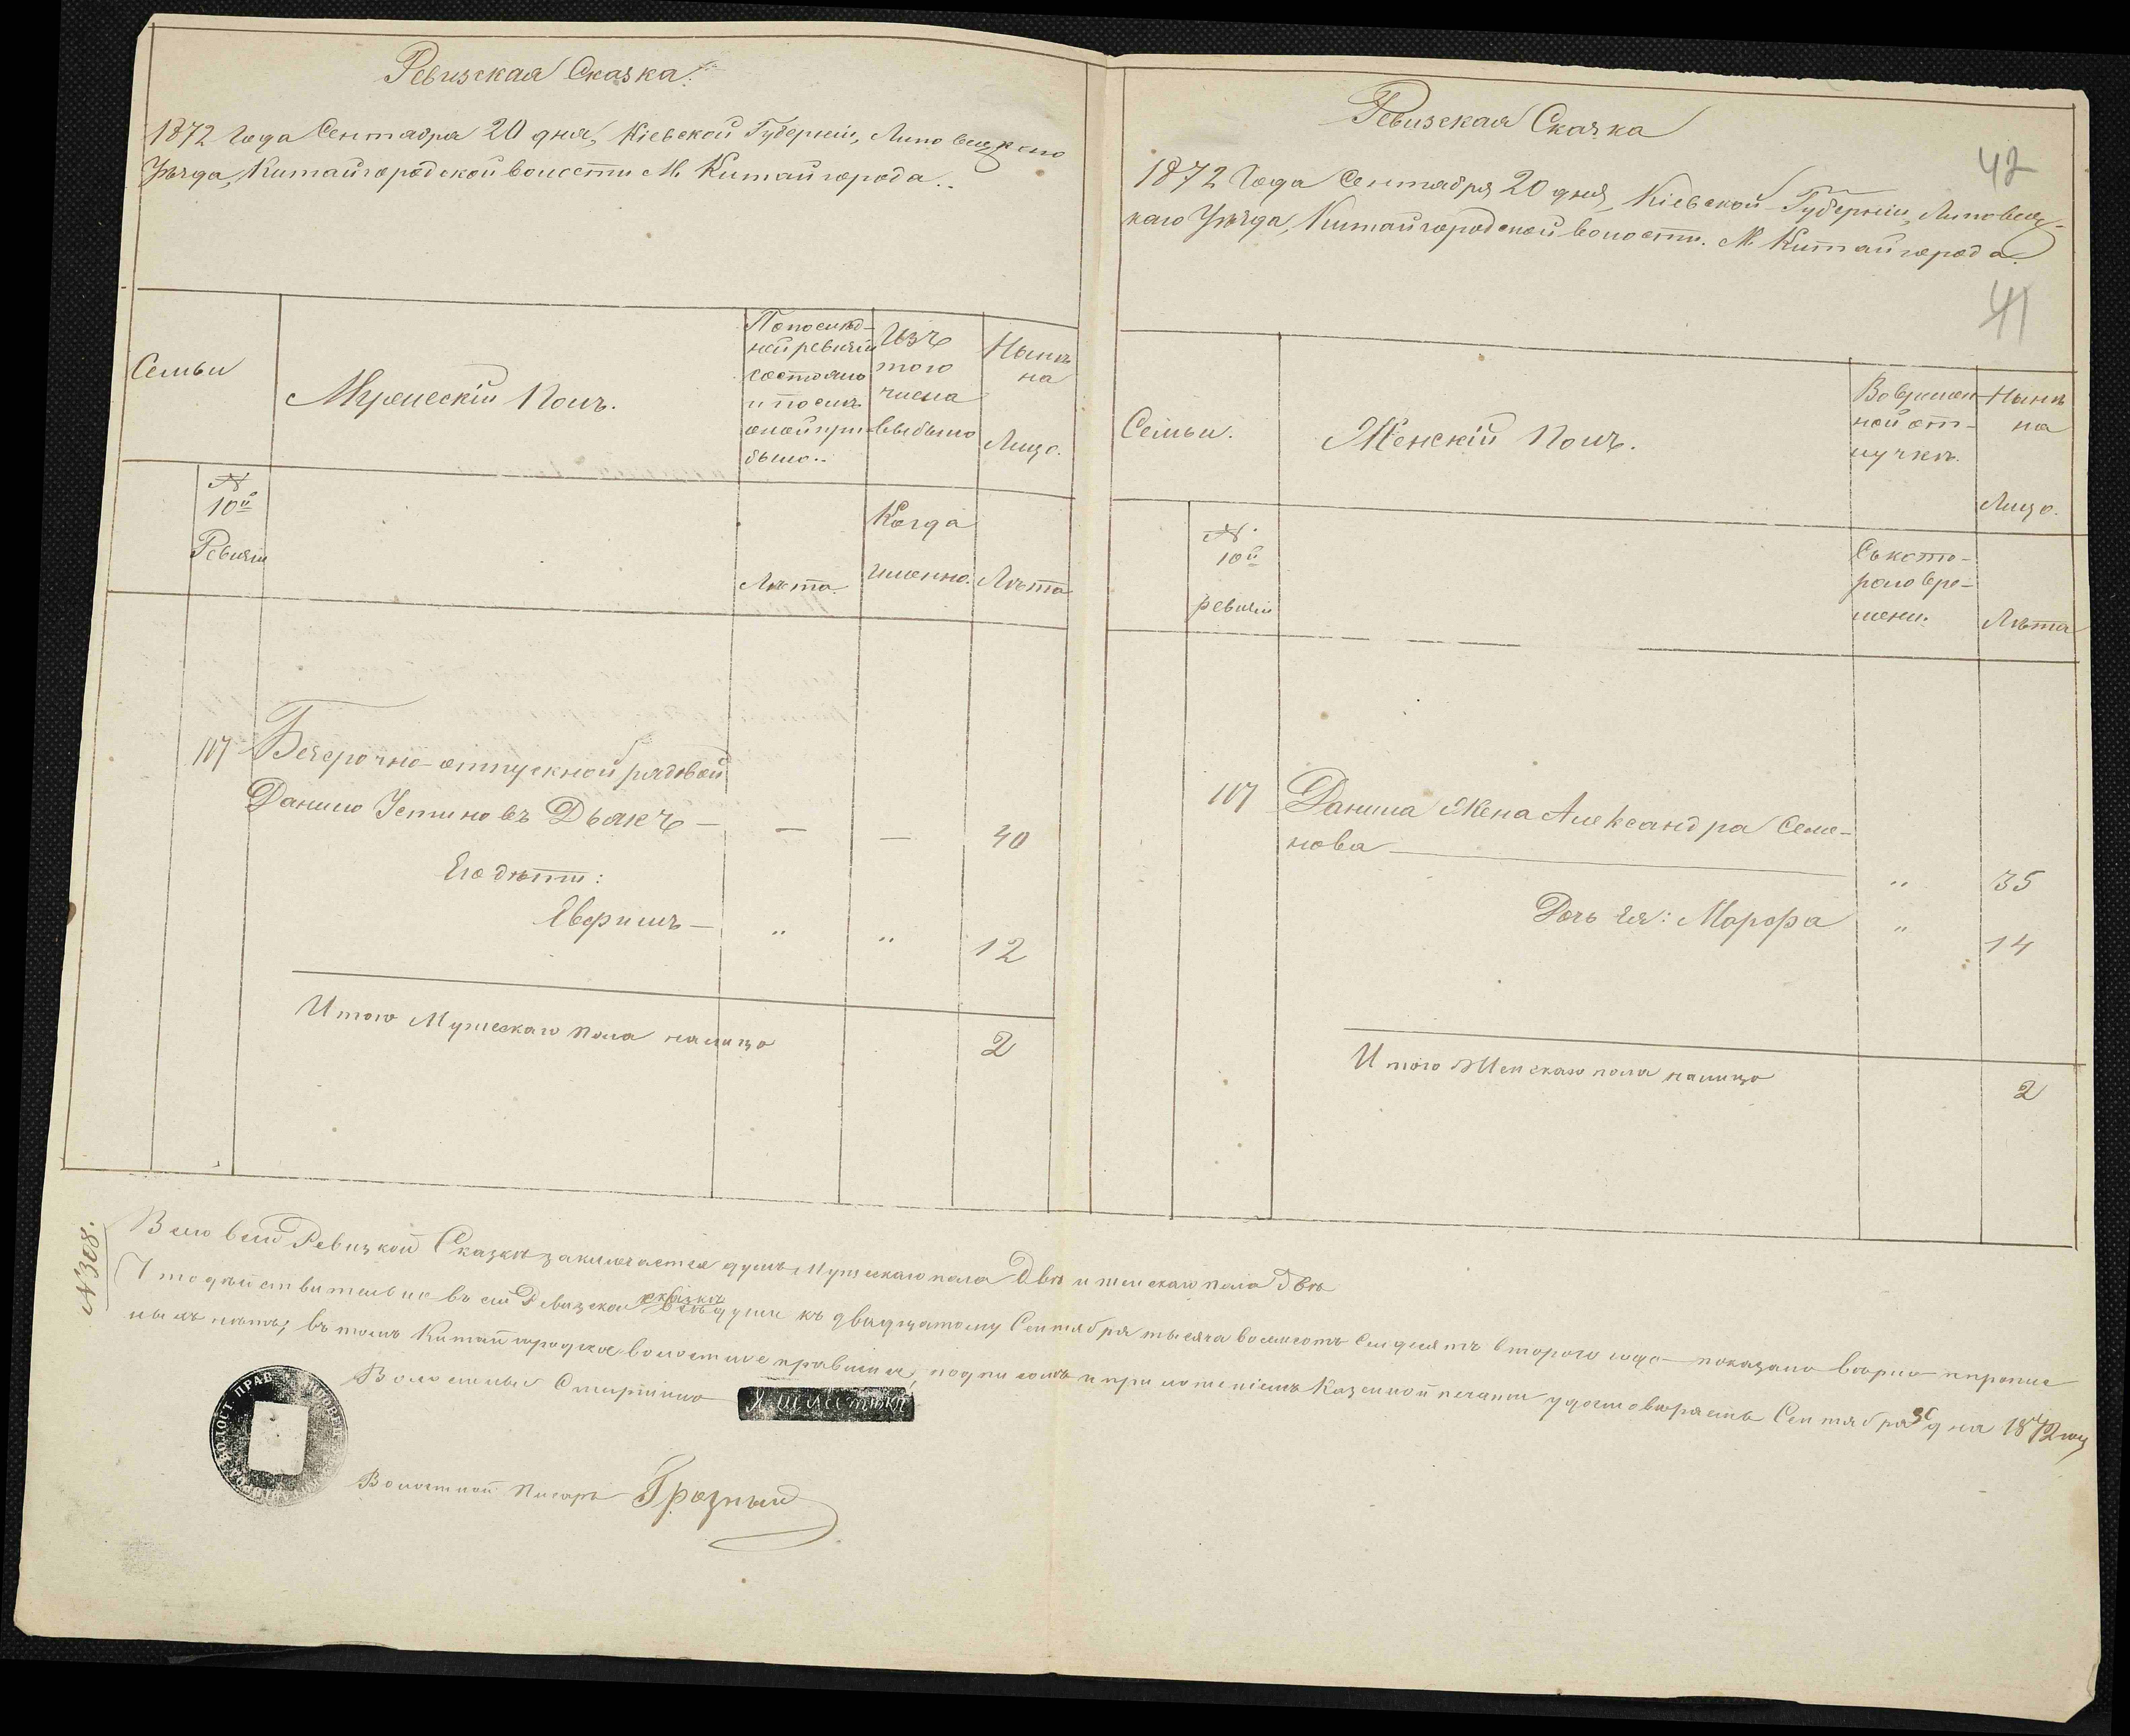 Ревизская Сказка.
1872 Года Сентября 20 дня, Кіевской Губерніи, Липовецкаго
Уѣзда, Китайгородской волости М. Китайгорода.
Семьи
Мужескій Полъ.
По послѣд-
ней ревизіи
состояло
и послѣ
оной при-
было.
Изъ
того
числа
выбыло
Нынѣ
на
Лицо.
№
10й
Ревизіи
Лѣта.
Когда
именно.
Лѣта
117 Безсрочно-отпускной рядовой
Данило Устиновъ Дьякъ — — — 40
Его дѣти:
Евфимъ — „ „ 12
Итого Мужескаго пола налицо 2
Ревизская Сказка
42
1872 Года Сентября 20 дня, Кіевской Губерніи, Липовец-
каго Уѣзда, Китайгородской волости. М. Китайгорода.
41
Семьи.
Женскій Полъ.
Во времен-
ной от-
лучкѣ.
Нынѣ
на
Лицо.
№.
10й
ревизіи
Съ кото-
раго вре-
мени.
Лѣта
117 Данила Жена Александра Семе-
нова „ 35
Дочь Ея: Марфа „ 14
Итого Женскаго пола налицо 2
№ 308.
Всего въ сей Ревизкой Сказкѣ заключается душъ Мужескаго пола Двѣ и женскаго пола Двѣ
Что дѣйствительно въ сей Ревизской сказкѣ всѣ души къ двадцатому Сентября тысяча восемьсотъ семдесятъ второго года показано вѣрно и пропис
ныхъ нѣтъ, въ томъ Китайгородское волостное правленіе, подписомъ и приложеніемъ Казенной печати удостовѣряетъ Сентября 30 дня 1872 года
Волостный Старшина
Волостной Писарь Грозный